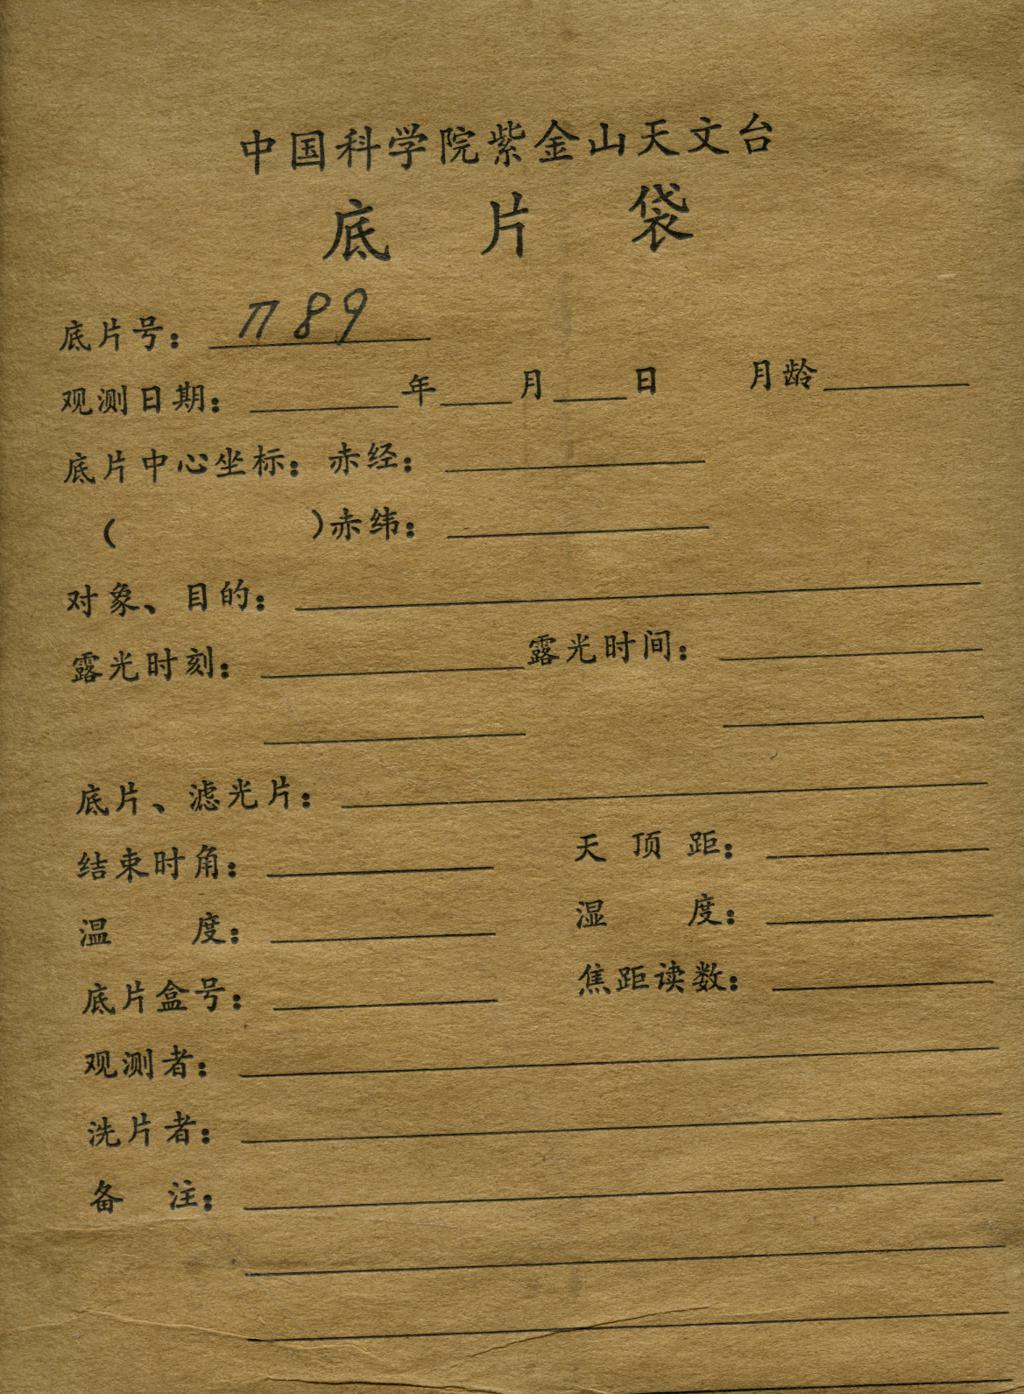 中国科学院紫金山天文台
底片袋
底片号： П89
观测日期： 年 月 日 月龄
底片中心坐标：赤经：
( )赤纬：
对象、目的：
露光时刻： 露光时间：
底片、滤光片：
结束时角： 天顶距：
温度： 湿度：
底片盒号： 焦距读数：
观测者：
洗片者：
备注：